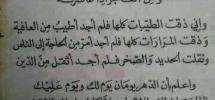 وإني ذقت الطيبات كلها فلم أجد أطيب من العافية
وذقت المرارات كلها فلم أجد أمر من الحاجة إلى الناس
ونقلت الحديد والصخر فلم أجد أثقل من الدين
واعلم أن الدهر يومان يوم لك ويوم عليك